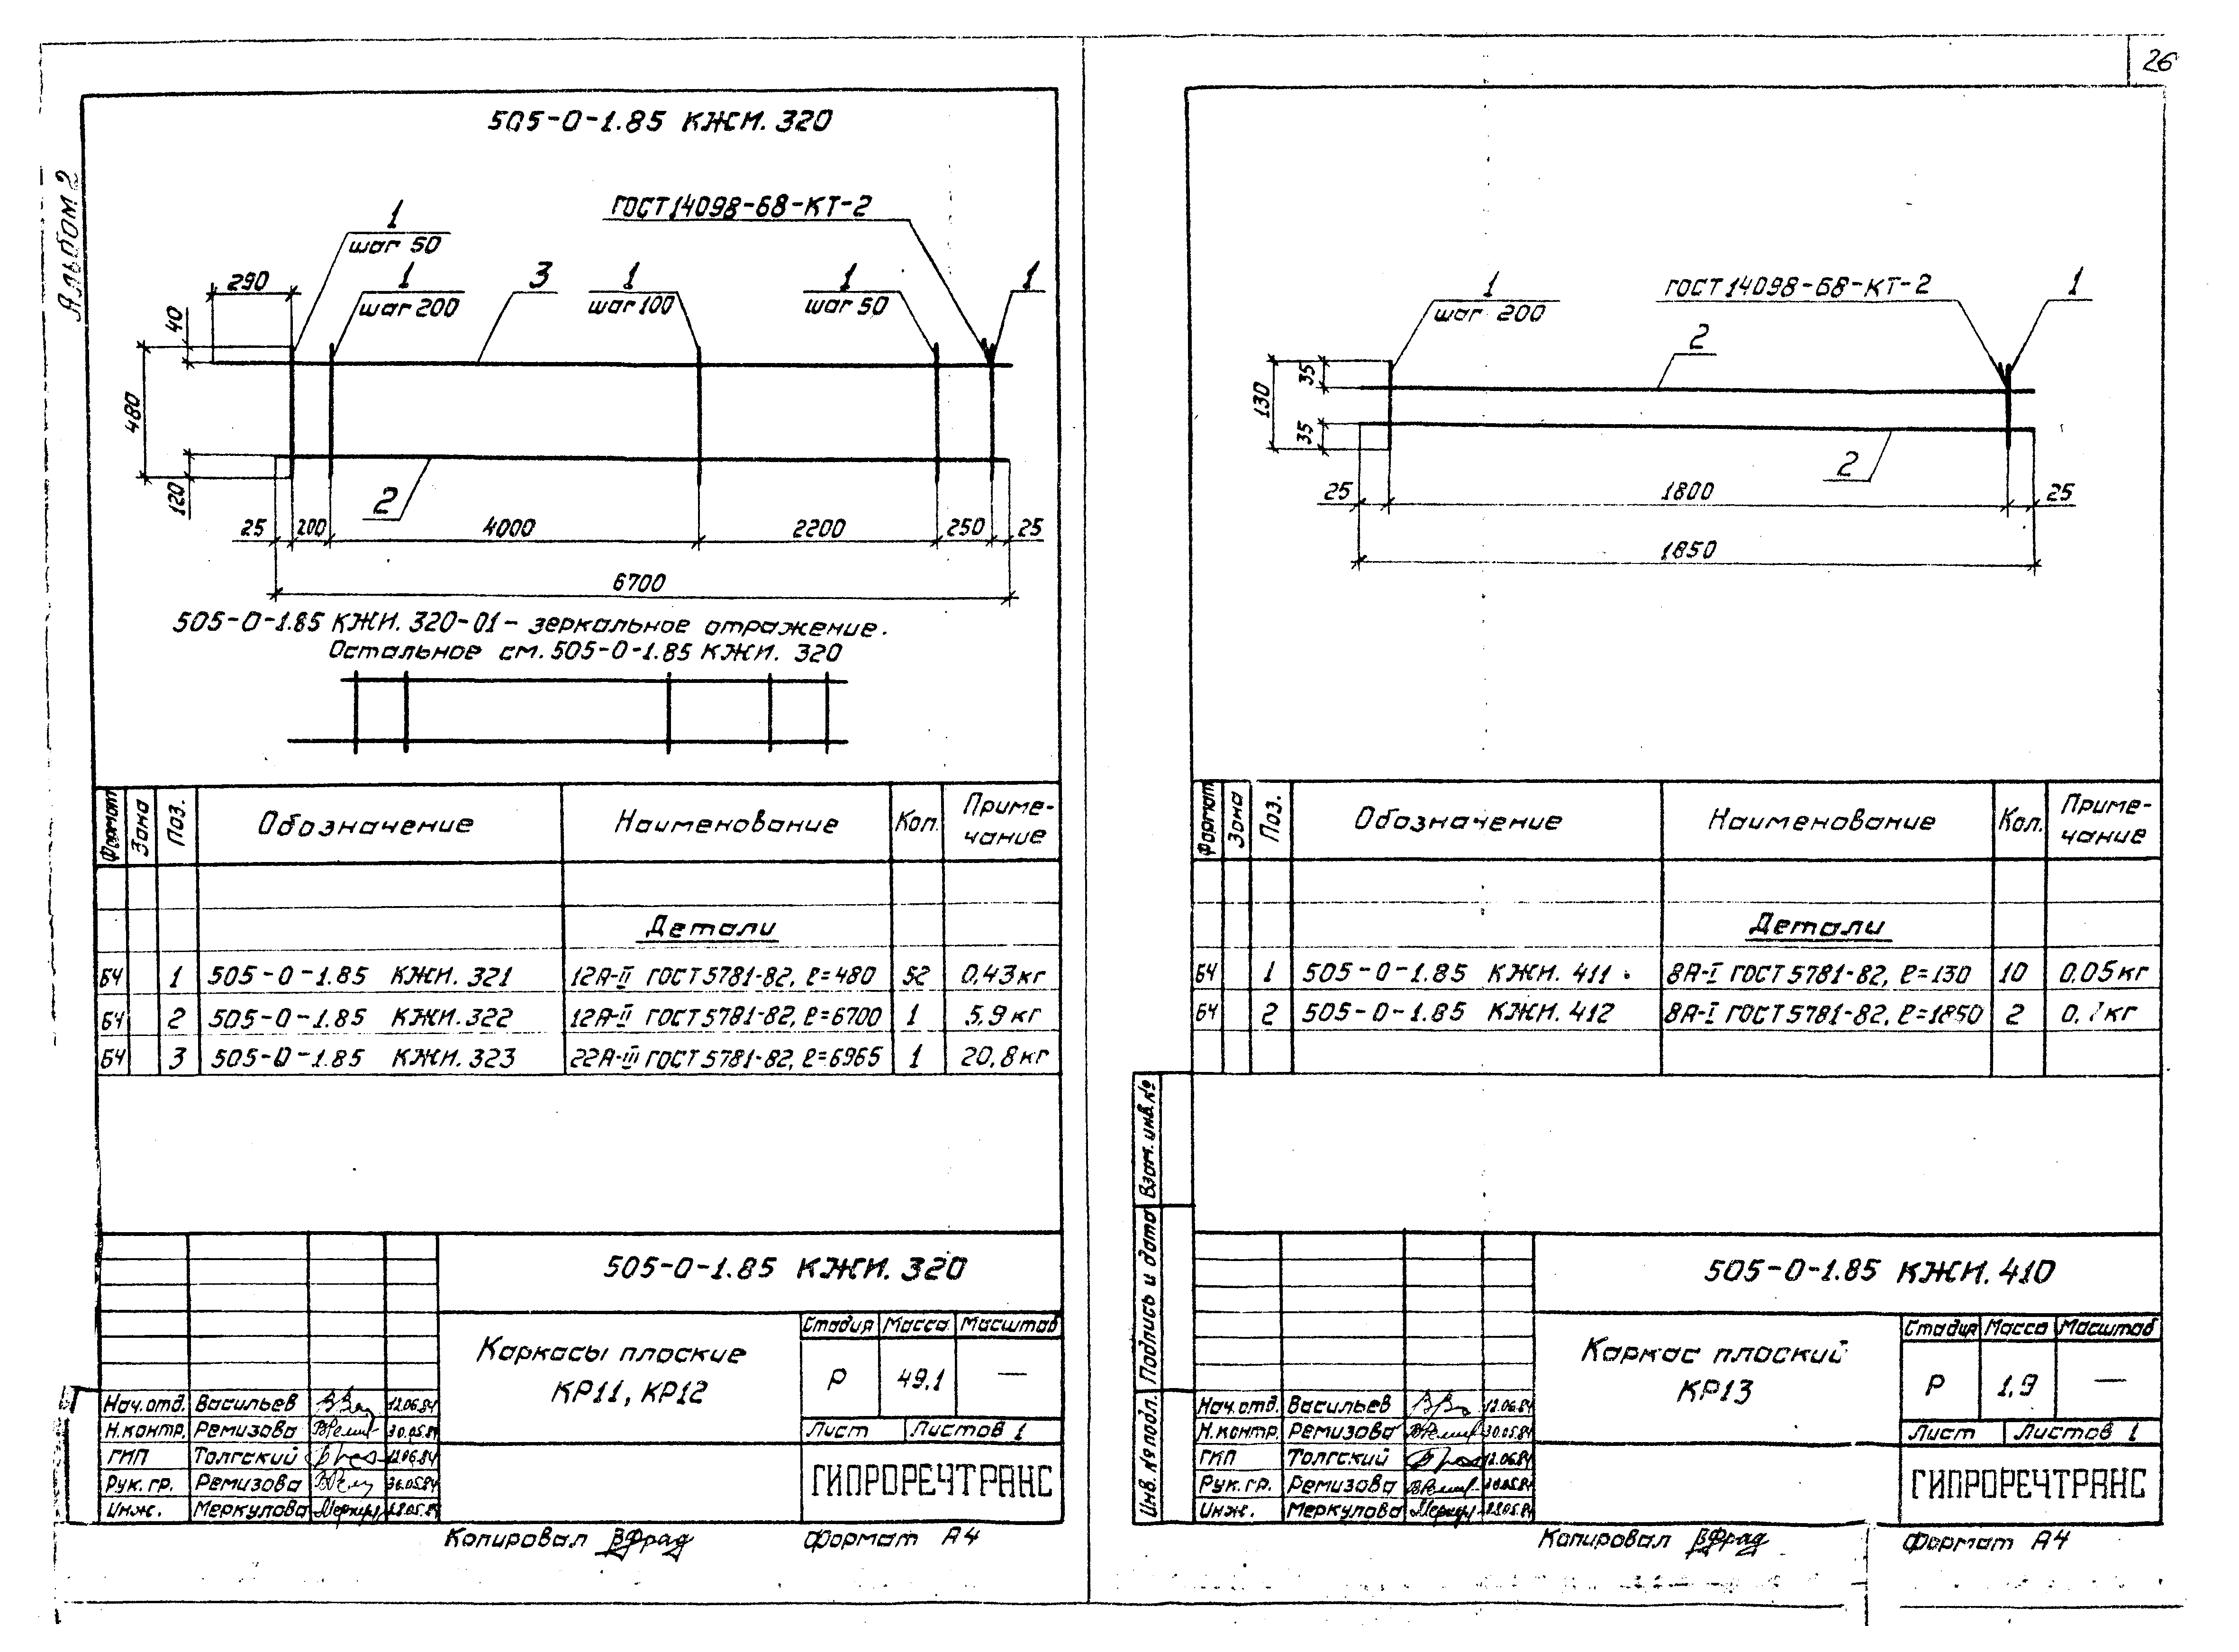 26
Альбом 2
505-0-1.85 КЖИ. 320
1
шаг 50
ГОСТ 14098-68-КТ-2
290
1
шаг 200
3
1
шаг 100
1
шаг 50
1
40
480
120
2
25
200
4000
2200
250
25
6700
505-0-1.85 КЖИ. 320-01 - зеркальное отражение.
Остальное см. 505-0-1.85 КЖИ. 320
Формат Зона Поз. Обозначение Наименование Кол. Приме-
чание
Детали
БЧ 1 505-0-1.85 КЖИ. 321 12А-II ГОСТ 5781-82, ℓ=480 52 0,43 кг
БЧ 2 505-0-1.85 КЖИ. 322 12А-II ГОСТ 5781-82, ℓ=6700 1 5,9 кг
БЧ 3 505-0-1.85 КЖИ. 323 22А-III ГОСТ 5781-82, ℓ=6965 1 20,8 кг
505-0-1.85 КЖИ. 320
Каркасы плоские
КР11, КР12
Стадия Масса Масштаб
Р 49,1 —
Лист Листов 1
ГИПРОРЕЧТРАНС
Нач. отд. Васильев 12.06.84
Н. контр. Ремизова 30.05.84
ГИП Толгский 12.06.84
Рук. гр. Ремизова 30.05.84
Инж. Меркулова 28.05.84
Копировал Формат А4
1
шаг 200
ГОСТ 14098-68-КТ-2
1
2
130
35
35
2
25
1800
25
1850
Формат Зона Поз. Обозначение Наименование Кол. Приме-
чание
Детали
БЧ 1 505-0-1.85 КЖИ. 411 8А-I ГОСТ 5781-82, ℓ=130 10 0,05 кг
БЧ 2 505-0-1.85 КЖИ. 412 8А-I ГОСТ 5781-82, ℓ=1850 2 0,7 кг
Взам. инв. №
Подпись и дата
Инв. № подл.
505-0-1.85 КЖИ. 410
Каркас плоский
КР13
Стадия Масса Масштаб
Р 1,9 —
Лист Листов 1
ГИПРОРЕЧТРАНС
Нач. отд. Васильев 12.06.84
Н. контр. Ремизова 30.05.84
ГИП Толгский 12.06.84
Рук. гр. Ремизова 30.05.84
Инж. Меркулова 28.05.84
Копировал Формат А4